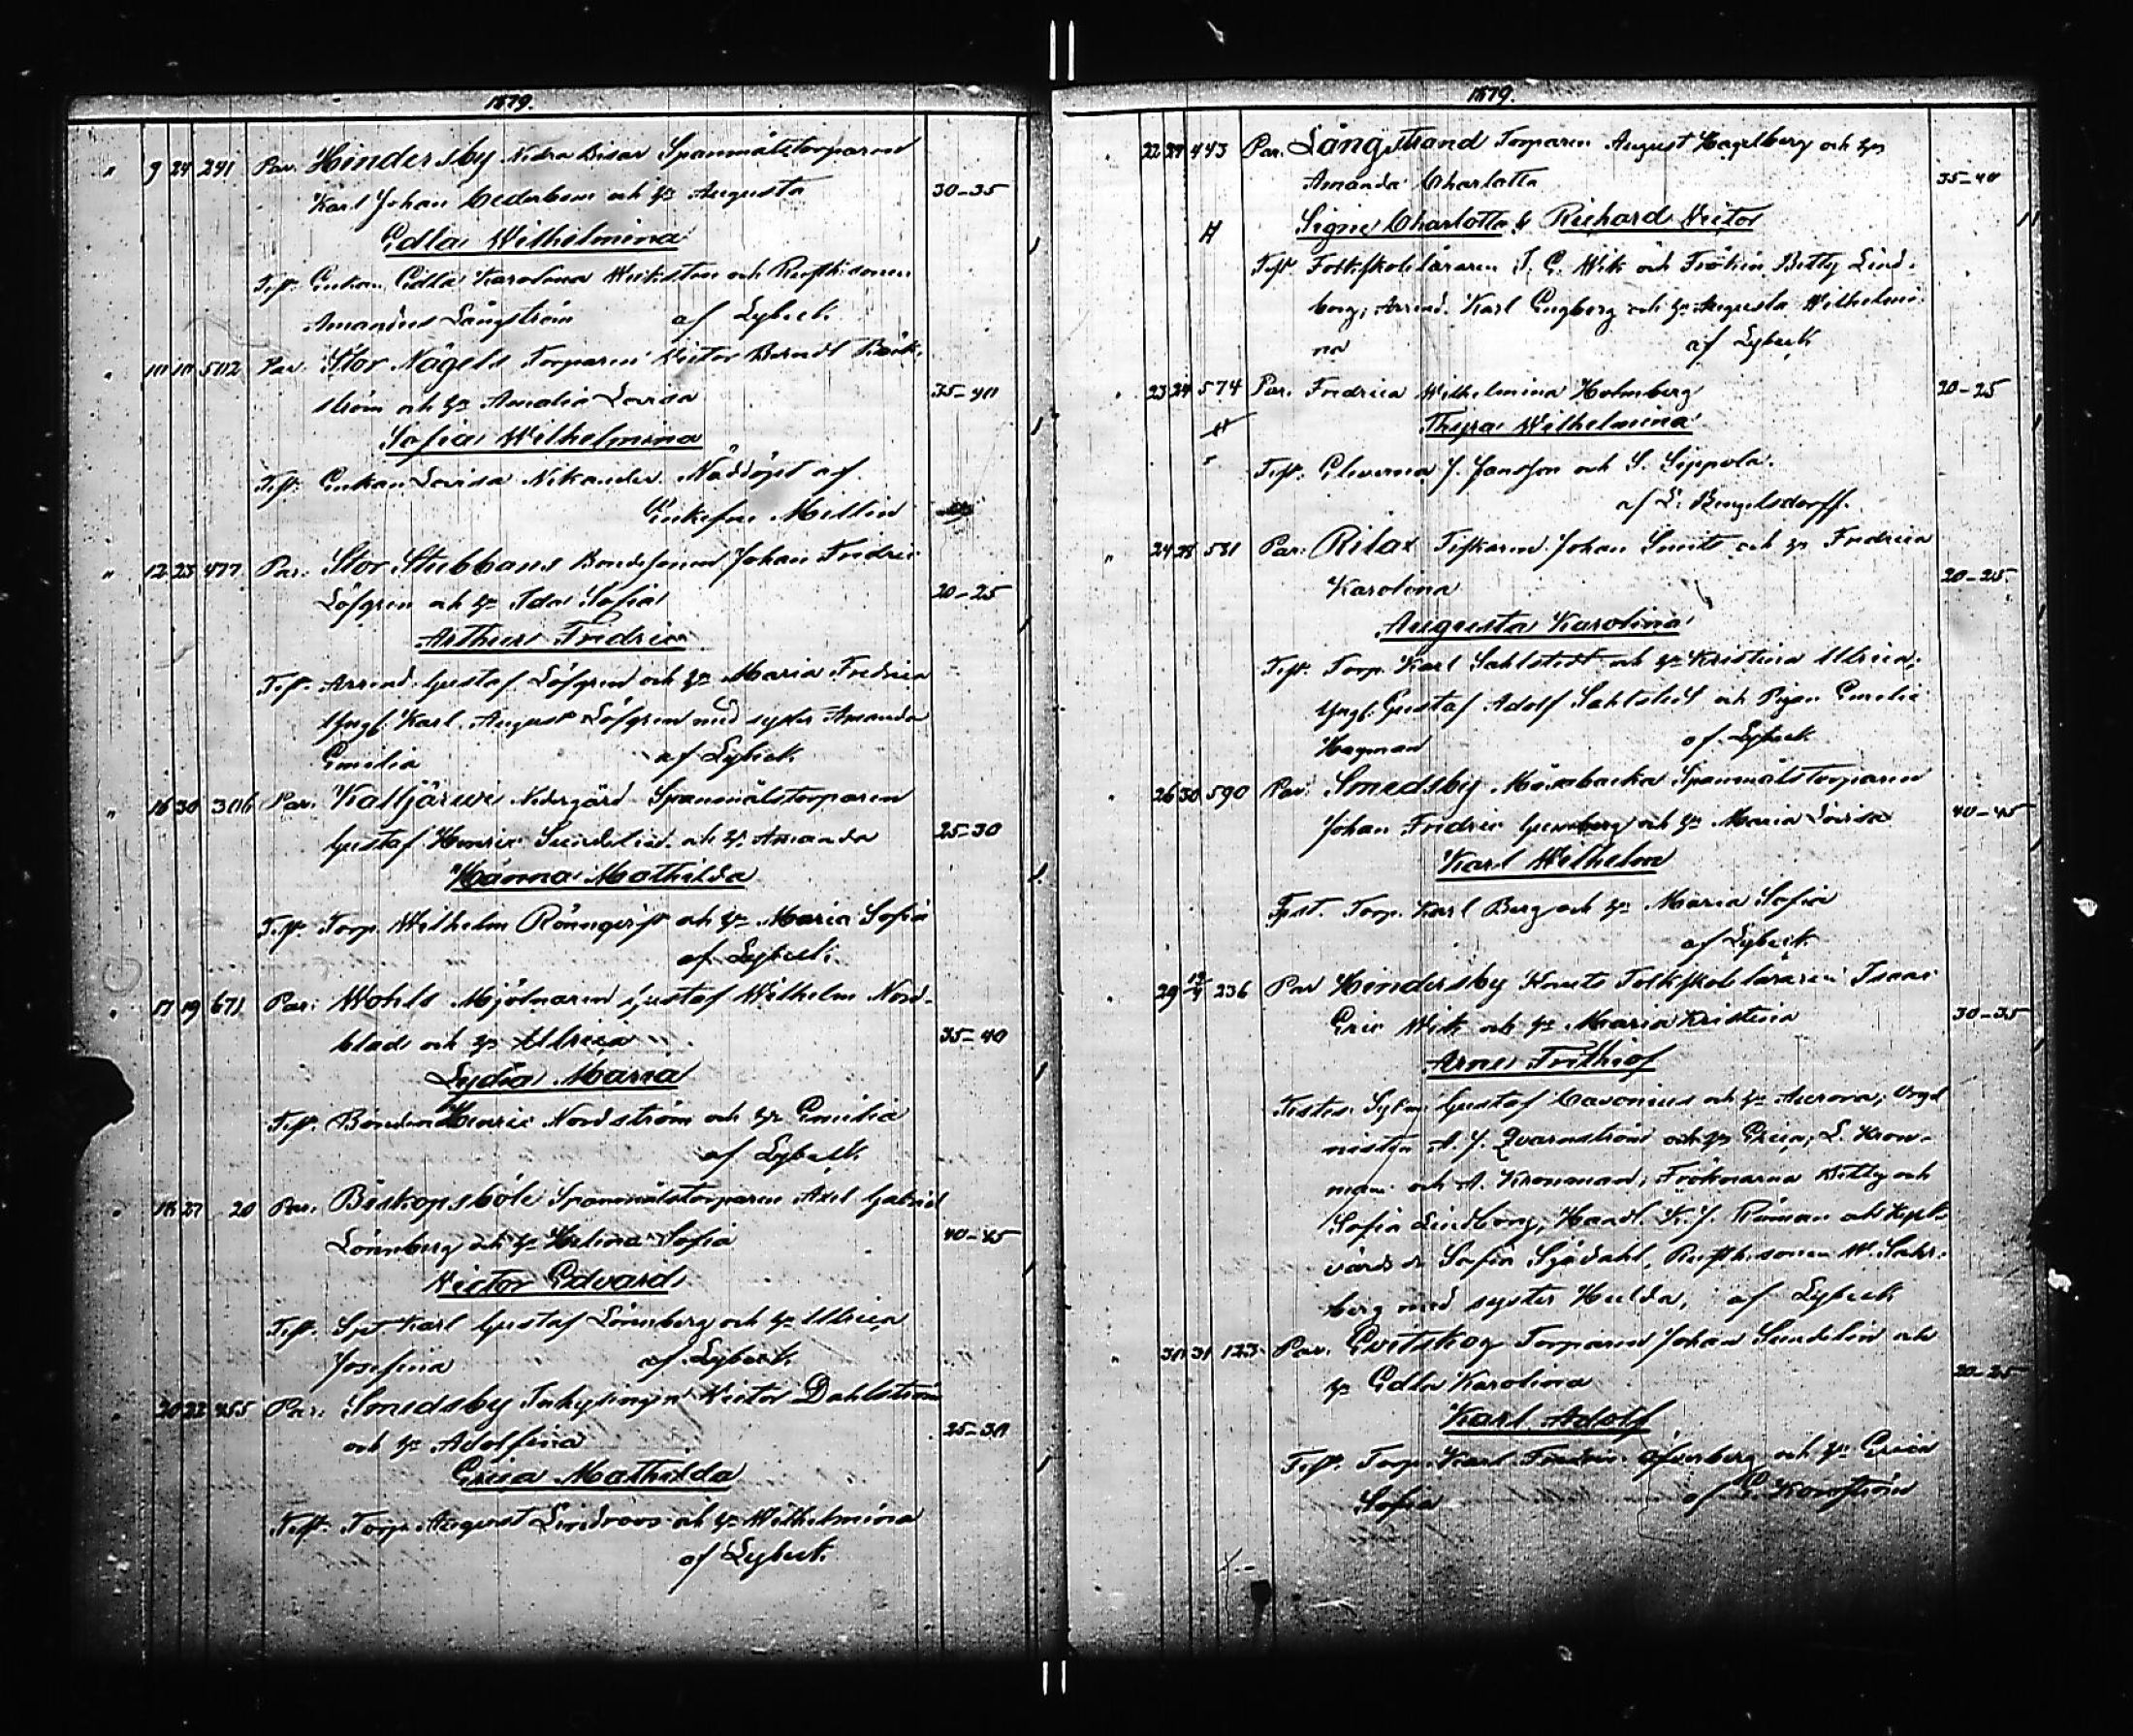 1879.
" 9 24 241 Par. Hindersby Nedra Bisar Spannmålstorparen
Karl Johan Cederbom och h:u Augusta 30-35
Edla Wilhelmina
Test. Enkan Edla Karolina och
Amandus Långström af Lybeck
" 10 10 502 Par. Stor Någels Torparen Victor Berndt Bäck-
ström och h:u Amalia Lovisa 35-40
Sofia Wilhelmina
Test. Enkan Lovisa Nikander. Nöddöpt af
Enkefru Mellin
" 12 23 477 Par. Stor Stubbans Bondesonen Johan Fredric
Löfgren och h:u Ida Sofia 20-25
Arthur Fredric
Test. Arrend. Gustaf Löfgren och h:u Maria Fredrica
Yngl. Karl August Löfgren med syster Amanda
Emilia af Lybeck
" 16 30 306 Par. Kalljärwi Nedergård Spannmålstorparen
Gustaf Henric Sundelin och h:u Amanda 25-30
Hanna Mathilda
Test. Torp. Wilhelm Rönnqvist och h:u Maria Sofia
af Lybeck.
" 17 19 671 Par. Wohls Mjölnaren Gustaf Wilhelm Nord-
blad och h:u Ulrica 35-40
Lydia Maria
Test. Bonden Henric Nordström och h:u Emilia
af Lybeck
" 18 27 20 Par. Biskopsböle Spannmålstorparen Axel Gabriel
Lönnberg och h:u Helena Sofia 40-45
Victor Edvard
Test. Karl Gustaf Lönnberg och h:u Ulrica
Josefina af Lybeck
" 20 22 455 Par. Smedsby Inhysingen Victor Dahlström
och h:u Adolfina 25-30
Erica Mathilda
Test. Torp. August Lindroos och h:u Wilhelmina
af Lybeck.
1879.
" 22 24 443 Par. Långstrand Torparen August Hagelberg och h:u
Amanda Charlotta 35-40
Signe Charlotta & Richard Victor
Test. Folkskoleläraren I. E. Wik och Fröken Betty Lind-
borg, Arrend. Karl Engberg och h:u Augusta Wilhelmi-
na af Lybeck
" 23 24 574 Par. Fredrica Wilhelmina Holmberg 20-25
Thyra Wilhelmina
Test. Eleverna J. Jansson och S. Sippola.
af L. Bengelsdorff.
" 24 28 581 Par. Rilax Fiskaren Johan Smits och h:u Fredrica
Karolina 20-25
Augusta Karolina
Test. Torp. Karl Sahlstedt och h:u Kristina Ulrica,
Yngl. Gustaf Adolf Sahlstedt och Pigan Emilie
Hagman af Lybeck
" 26 30 590 Par. Smedsby Spannmålstorparen
Johan Fredric och h:u Maria Lovisa 40-45
Karl Wilhelm
Test. Torp. Karl Berg och h:u Maria Sofia
af Lybeck
" 29 236 Par Hindersby Knuts Folkskoleläraren Isaac
Eric Wik och h:u Maria Kristina 30-35
Arne Frithiof
Testes: Gustaf Cavonius och h:u Aurora; Orga
nisten A. J. Qvarnström och h:u Erica; L. Kron-
man och A. Kronman; Fröknarna Betty och
Sofia Lindborg, Handl. K. J. Roman och
Sofia Sjödahl, W. Sahl-
berg med syster Hulda, af Lybeck
" 30 31 123 Par. Gvitskog Torparen Johan Sundelin och
h:u Edla Karolina 20-25
Karl Adolf
Test. Torp. Karl Fredric Öfverberg och h:u Erica
Sofia af